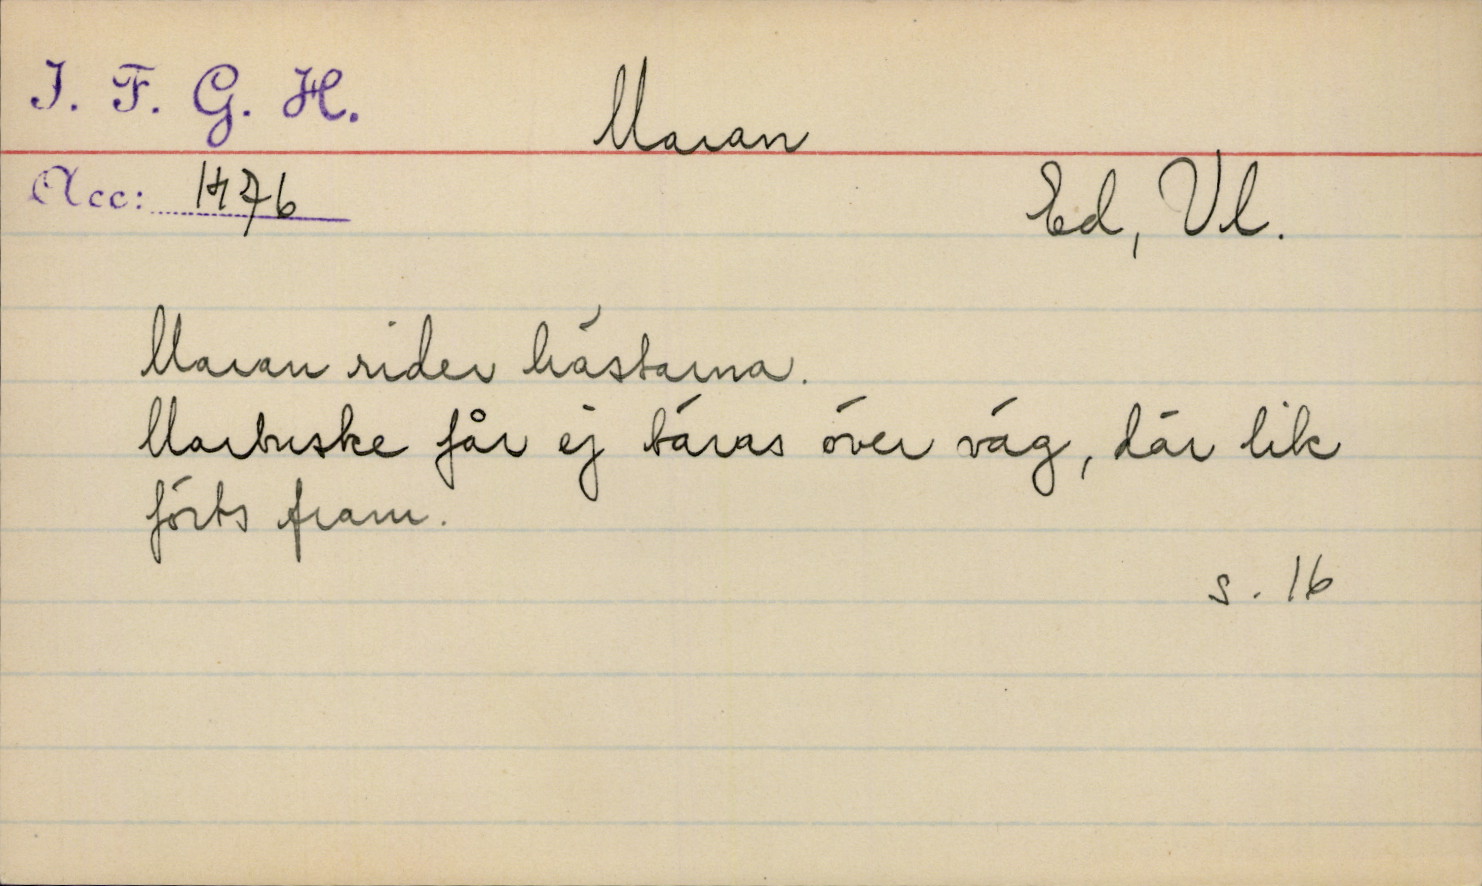 I. F. G. H.
Maran
Acc: 1476
Ed, Vl.
Maran rider hästarna.
Marbuske får ej bäras över väg, där lik
förts fram.
s. 16